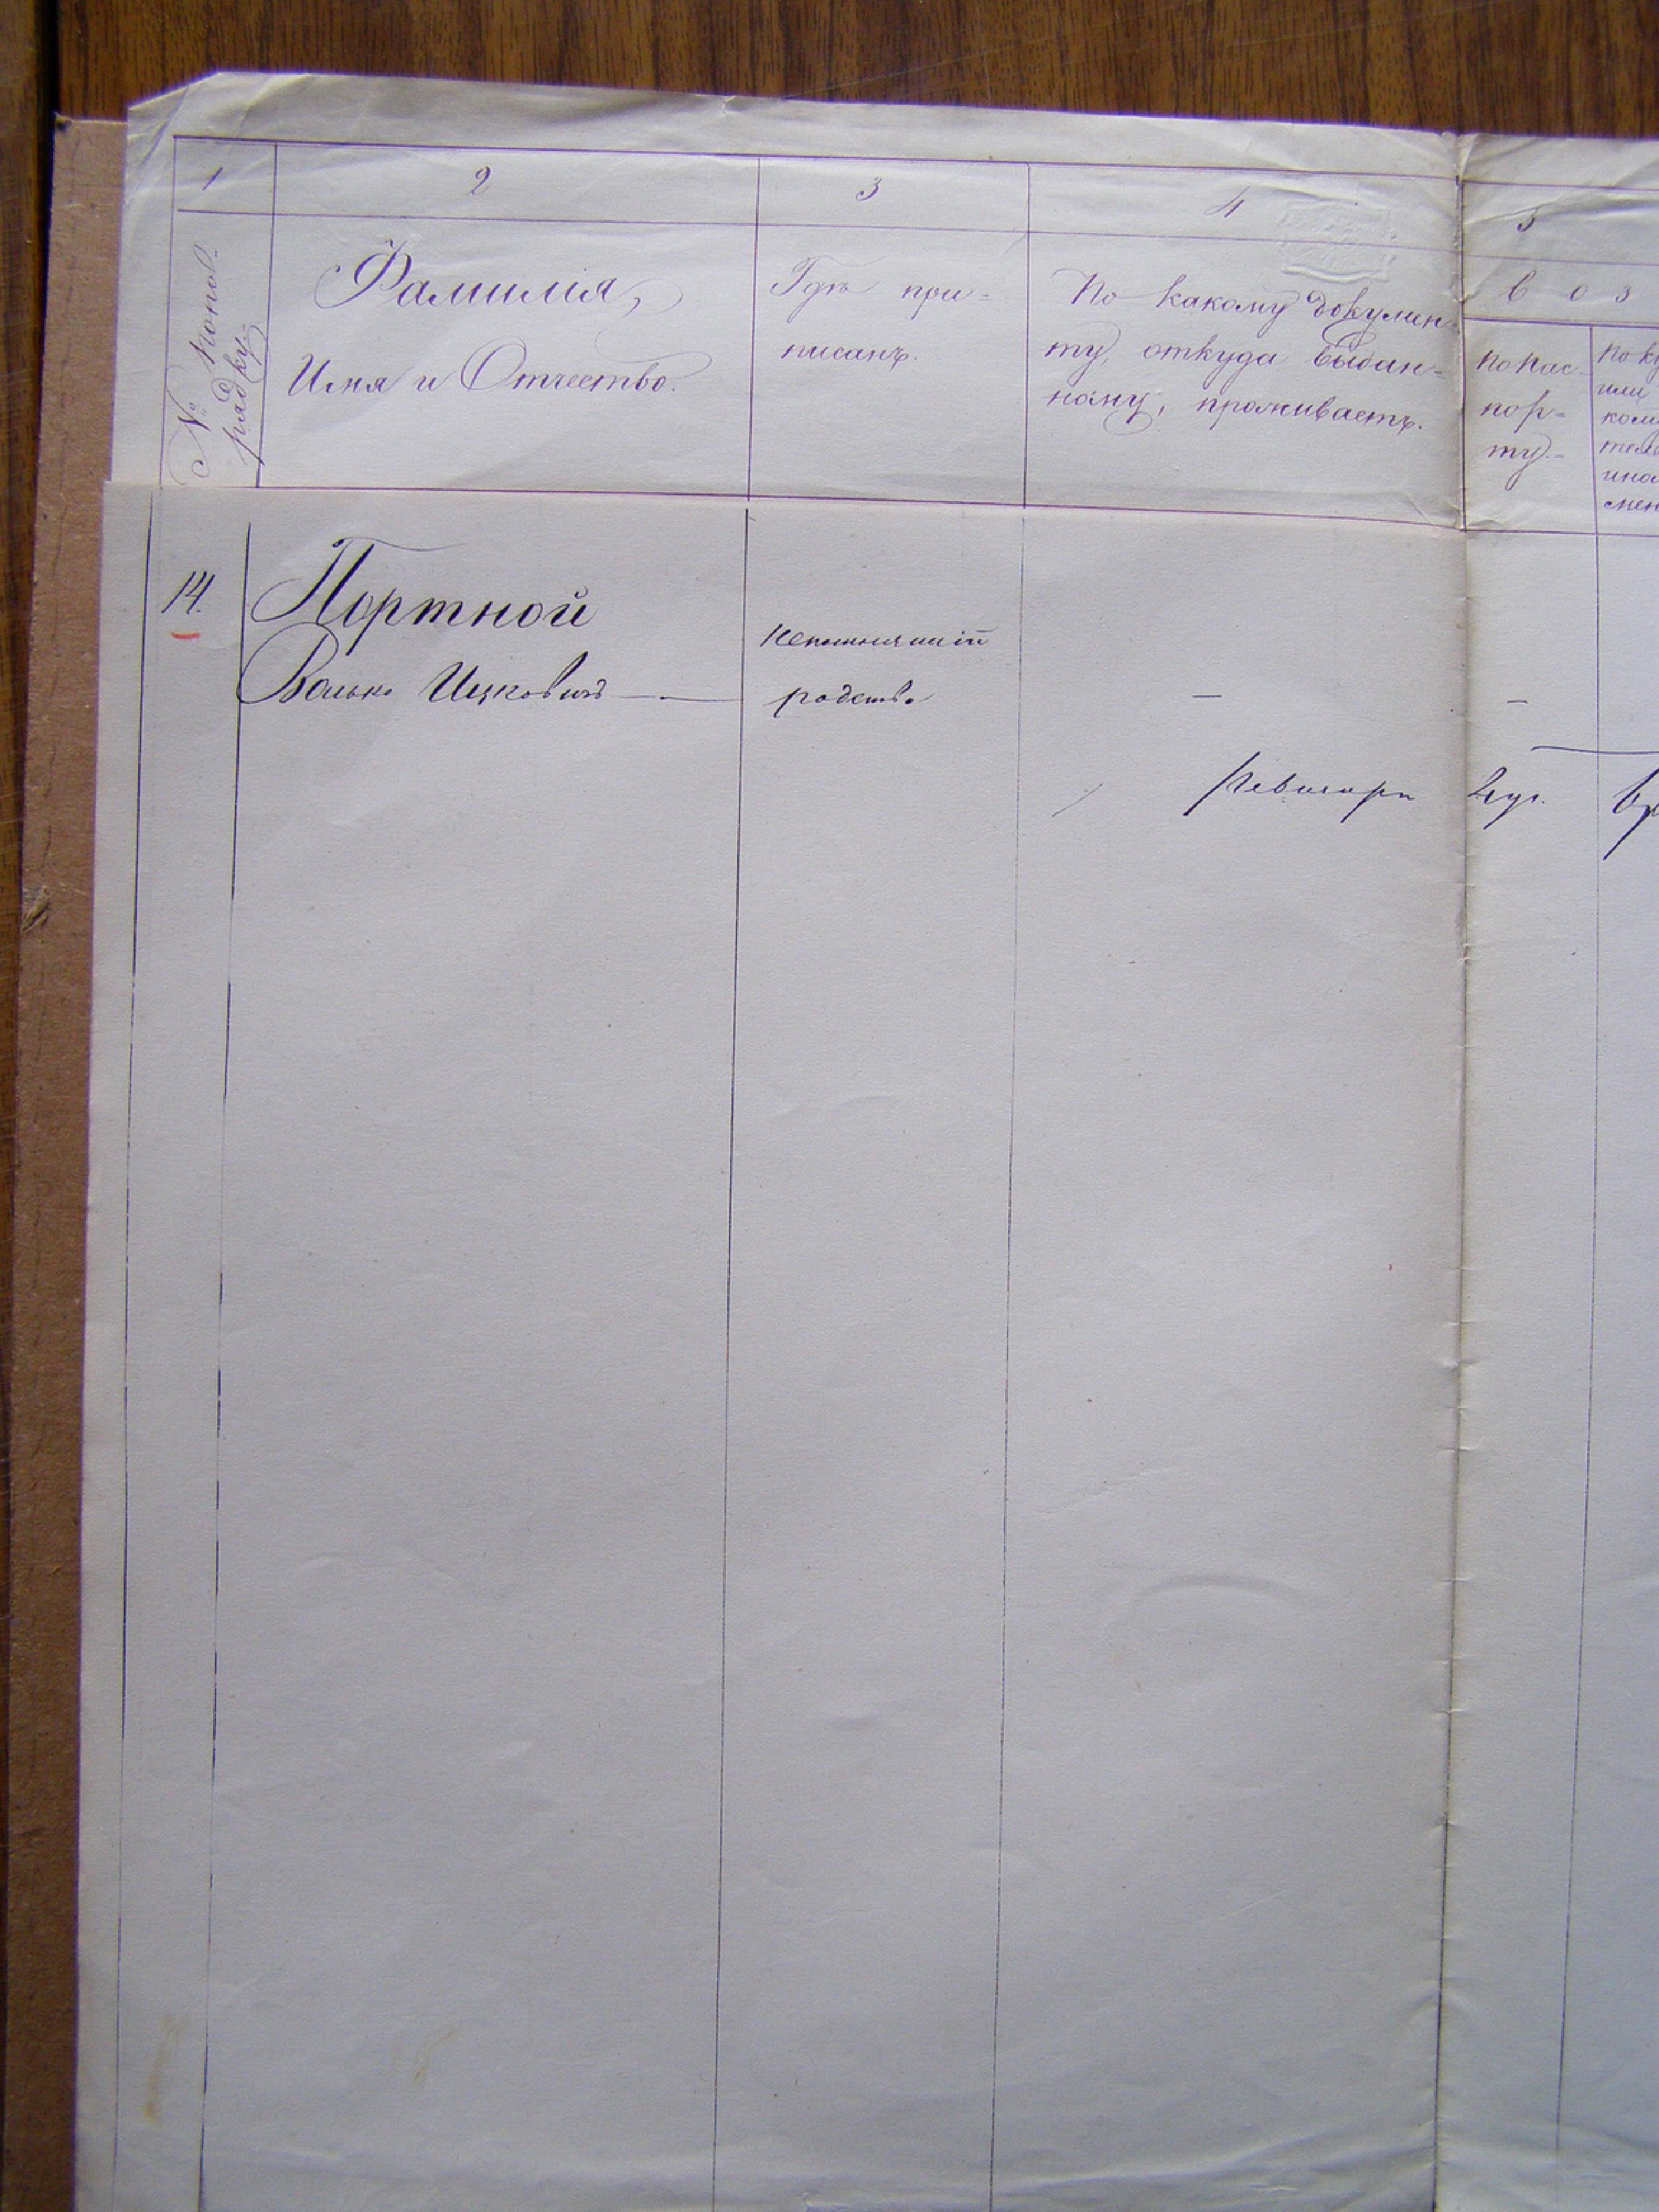 1
2
3
4
5
№ по пов-
рядку.
Фамилія,
Имя и Отчество.
Гдѣ при-
писанъ.
По какому докумен-
ту, откуда выдан-
ному, проживаетъ.
в о з
По пас-
пор-
ту.
14.
Портной
Волько Ицковичъ
непомнящій
родства
—
—